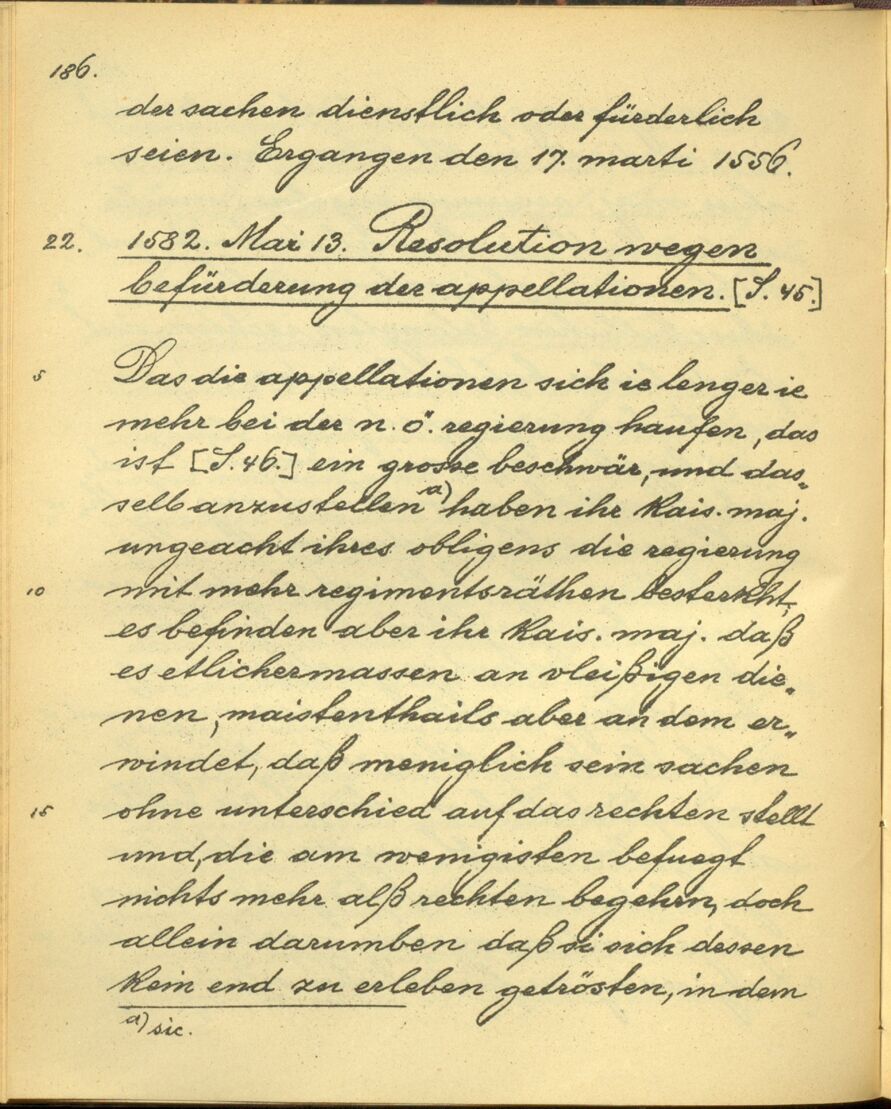 186.
der sachen dienstlich oder fürderlich
seien. Ergangen den 17. marti 1556.
22. 1582. Mai 13. Resolution wegen
befürderung der appellationen. [S. 45.]
5 Das die appellationen sich ie lenger ie
mehr bei der n. ö. regierung haufen, das
ist [S. 46.] ein grosse beschwär, und das„
selb anzustellen a) haben ihr Kais. maj.
ungeacht ihres obligens die regierung
10 mit mehr regimentsräthen besterkht,
es befinden aber ihr Kais. maj. daß
es etlichermassen an vleißigen die„
nen, maistenthails aber an dem er„
windet, daß meniglich sein sachen
15 ohne unterschied auf das rechten stellt
und, die am wenigisten befuegt
nichts mehr alß rechten begehrn, doch
allein darumben daß si sich dessen
kein end zu erleben getrösten, in dem
a) sic.